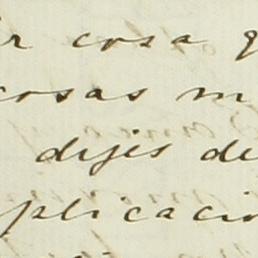 r cosa q
cosas m
dijis de
plicacio